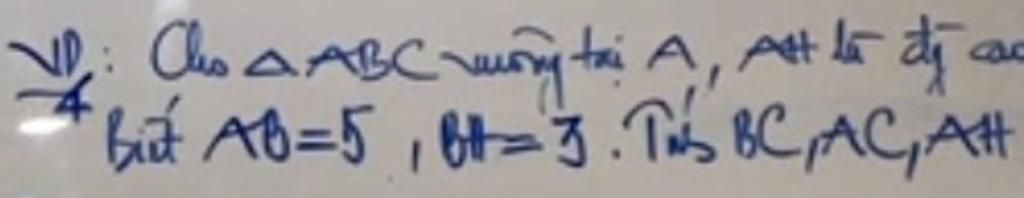 VD4: Cho △ ABC vuông tại A, AH là đg cao
Biết AB = 5, BH = 3. Tính BC, AC, AH